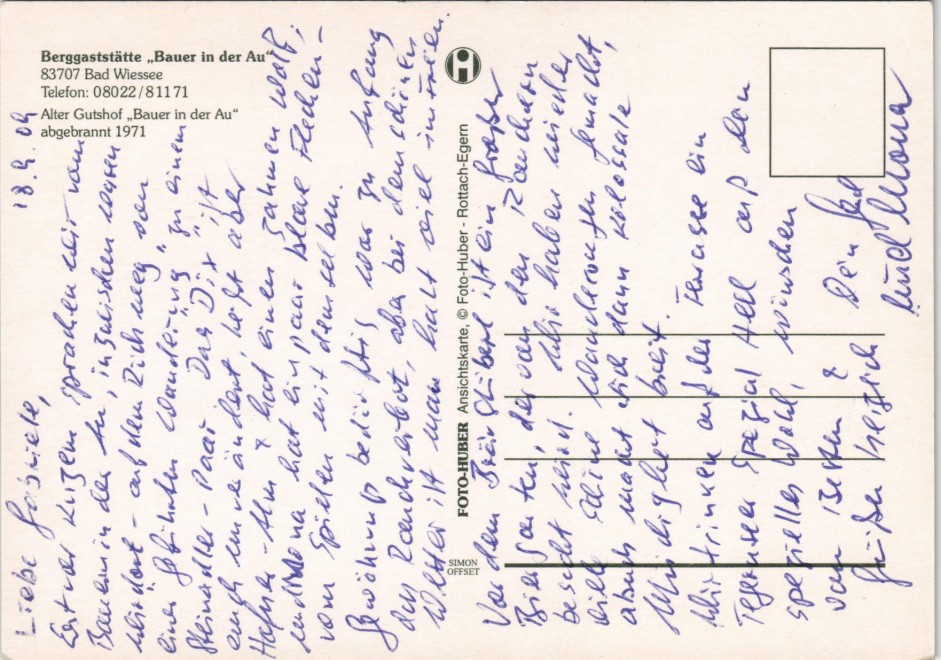 Berggaststätte „Bauer in der Au“
83707 Bad Wiessee
Telefon: 08022/81171
Alter Gutshof „Bauer in der Au“
abgebrannt 1971
FOTO-HUBER Ansichtskarte, © Foto-Huber - Rottach-Egern
SIMON
OFFSET
18.9.09
Liebe Gabriele,
vor kurzem sprachen wir vom
Bauer in der Au, inzwischen
auf dem Rückweg von
einer geführten Wanderung zu einem
Paar Das D ist
unverändert, liegt aber
& hat einen zahmen Wolf;
und Mona hat ein paar blaue Flecken –
vom Spielen mit demselben.
Gewöhnungsbedürftig war zu Anfang
das Rauchverbot, aber bei dem schönen
Wetter ist man halt viel im Freien.
Vor dem Bräustüberl ist ein großer
Biergarten, der von den Rauchern
besucht wird. Wir haben wieder
viele schöne Wanderungen gemacht,
abends macht sich dann kolossale
Müdigkeit breit.
Wir trinken auf der Terrasse ein
Tegernseer Spezial Hell auf Dein
spezielles Wohl, wünschen
von Besten &
grüßen herzlich Dein
und Mona